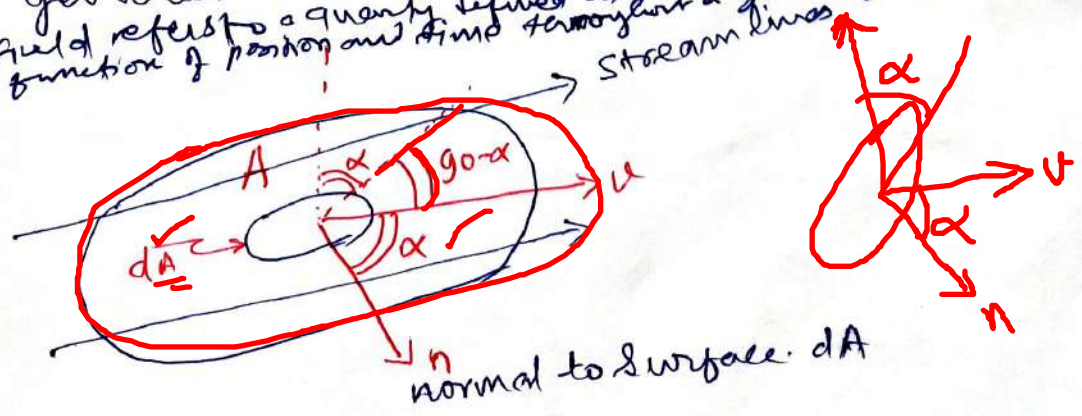 field refers to a quantity defined
function of position and time throughout a
stream lines
A
α
90-α
v
dA
α
n
normal to Surface. dA
α
v
α
n